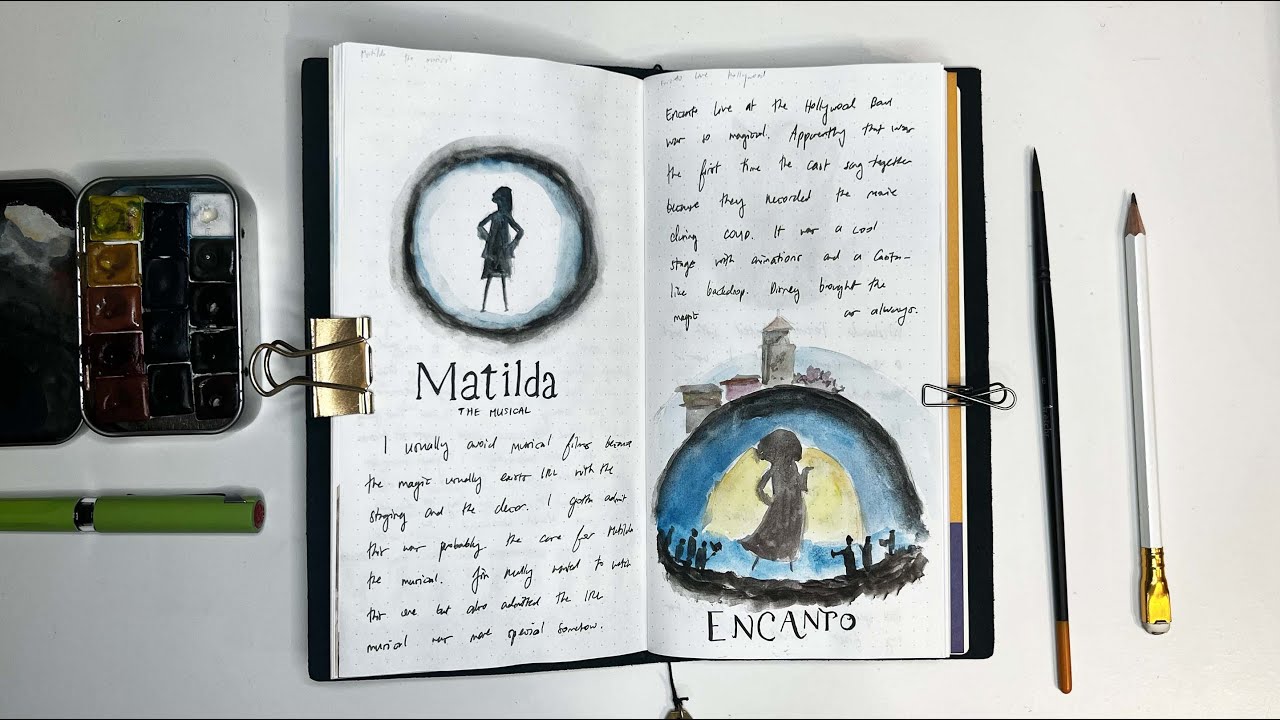 Matilda the musical
Matilda
THE MUSICAL
I usually avoid musical films because
the magic usually exists IRL with the
staging and the decor. I gotta admit
this was probably the case for Matilda
the musical. really wanted to watch
this one but also admitted the IRL
musical was more special somehow.
Encanto Live Hollywood
Encanto Live at the Hollywood Bowl
was so magical. Apparently that was
the first time the cast sang together
because they recorded the movie
during COVID. It was a cool
stage with animations and a Casita-
like backdrop. Disney brought the
magic as always.
ENCANTO